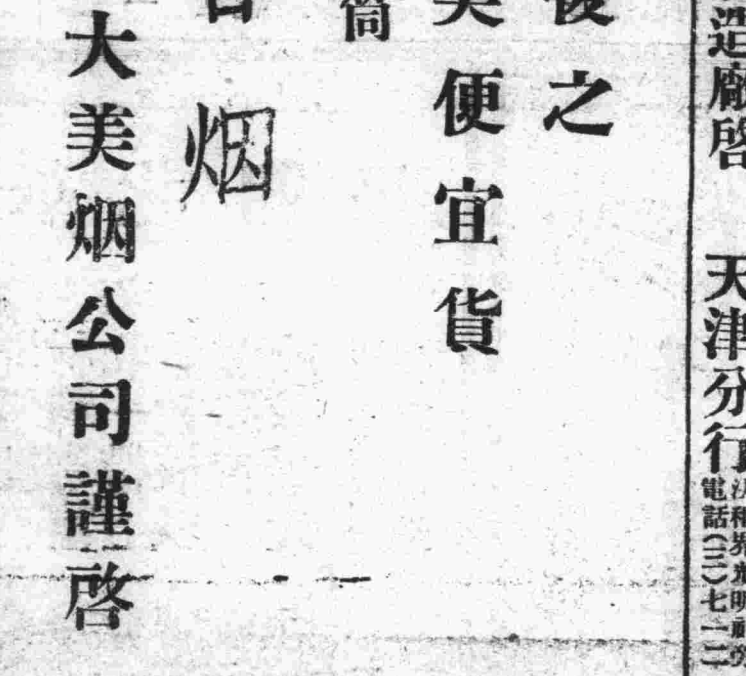 造廠啓
天津分行
電話(三)七一二
後之
美便宜貨
筒
烟
大美烟公司謹啓